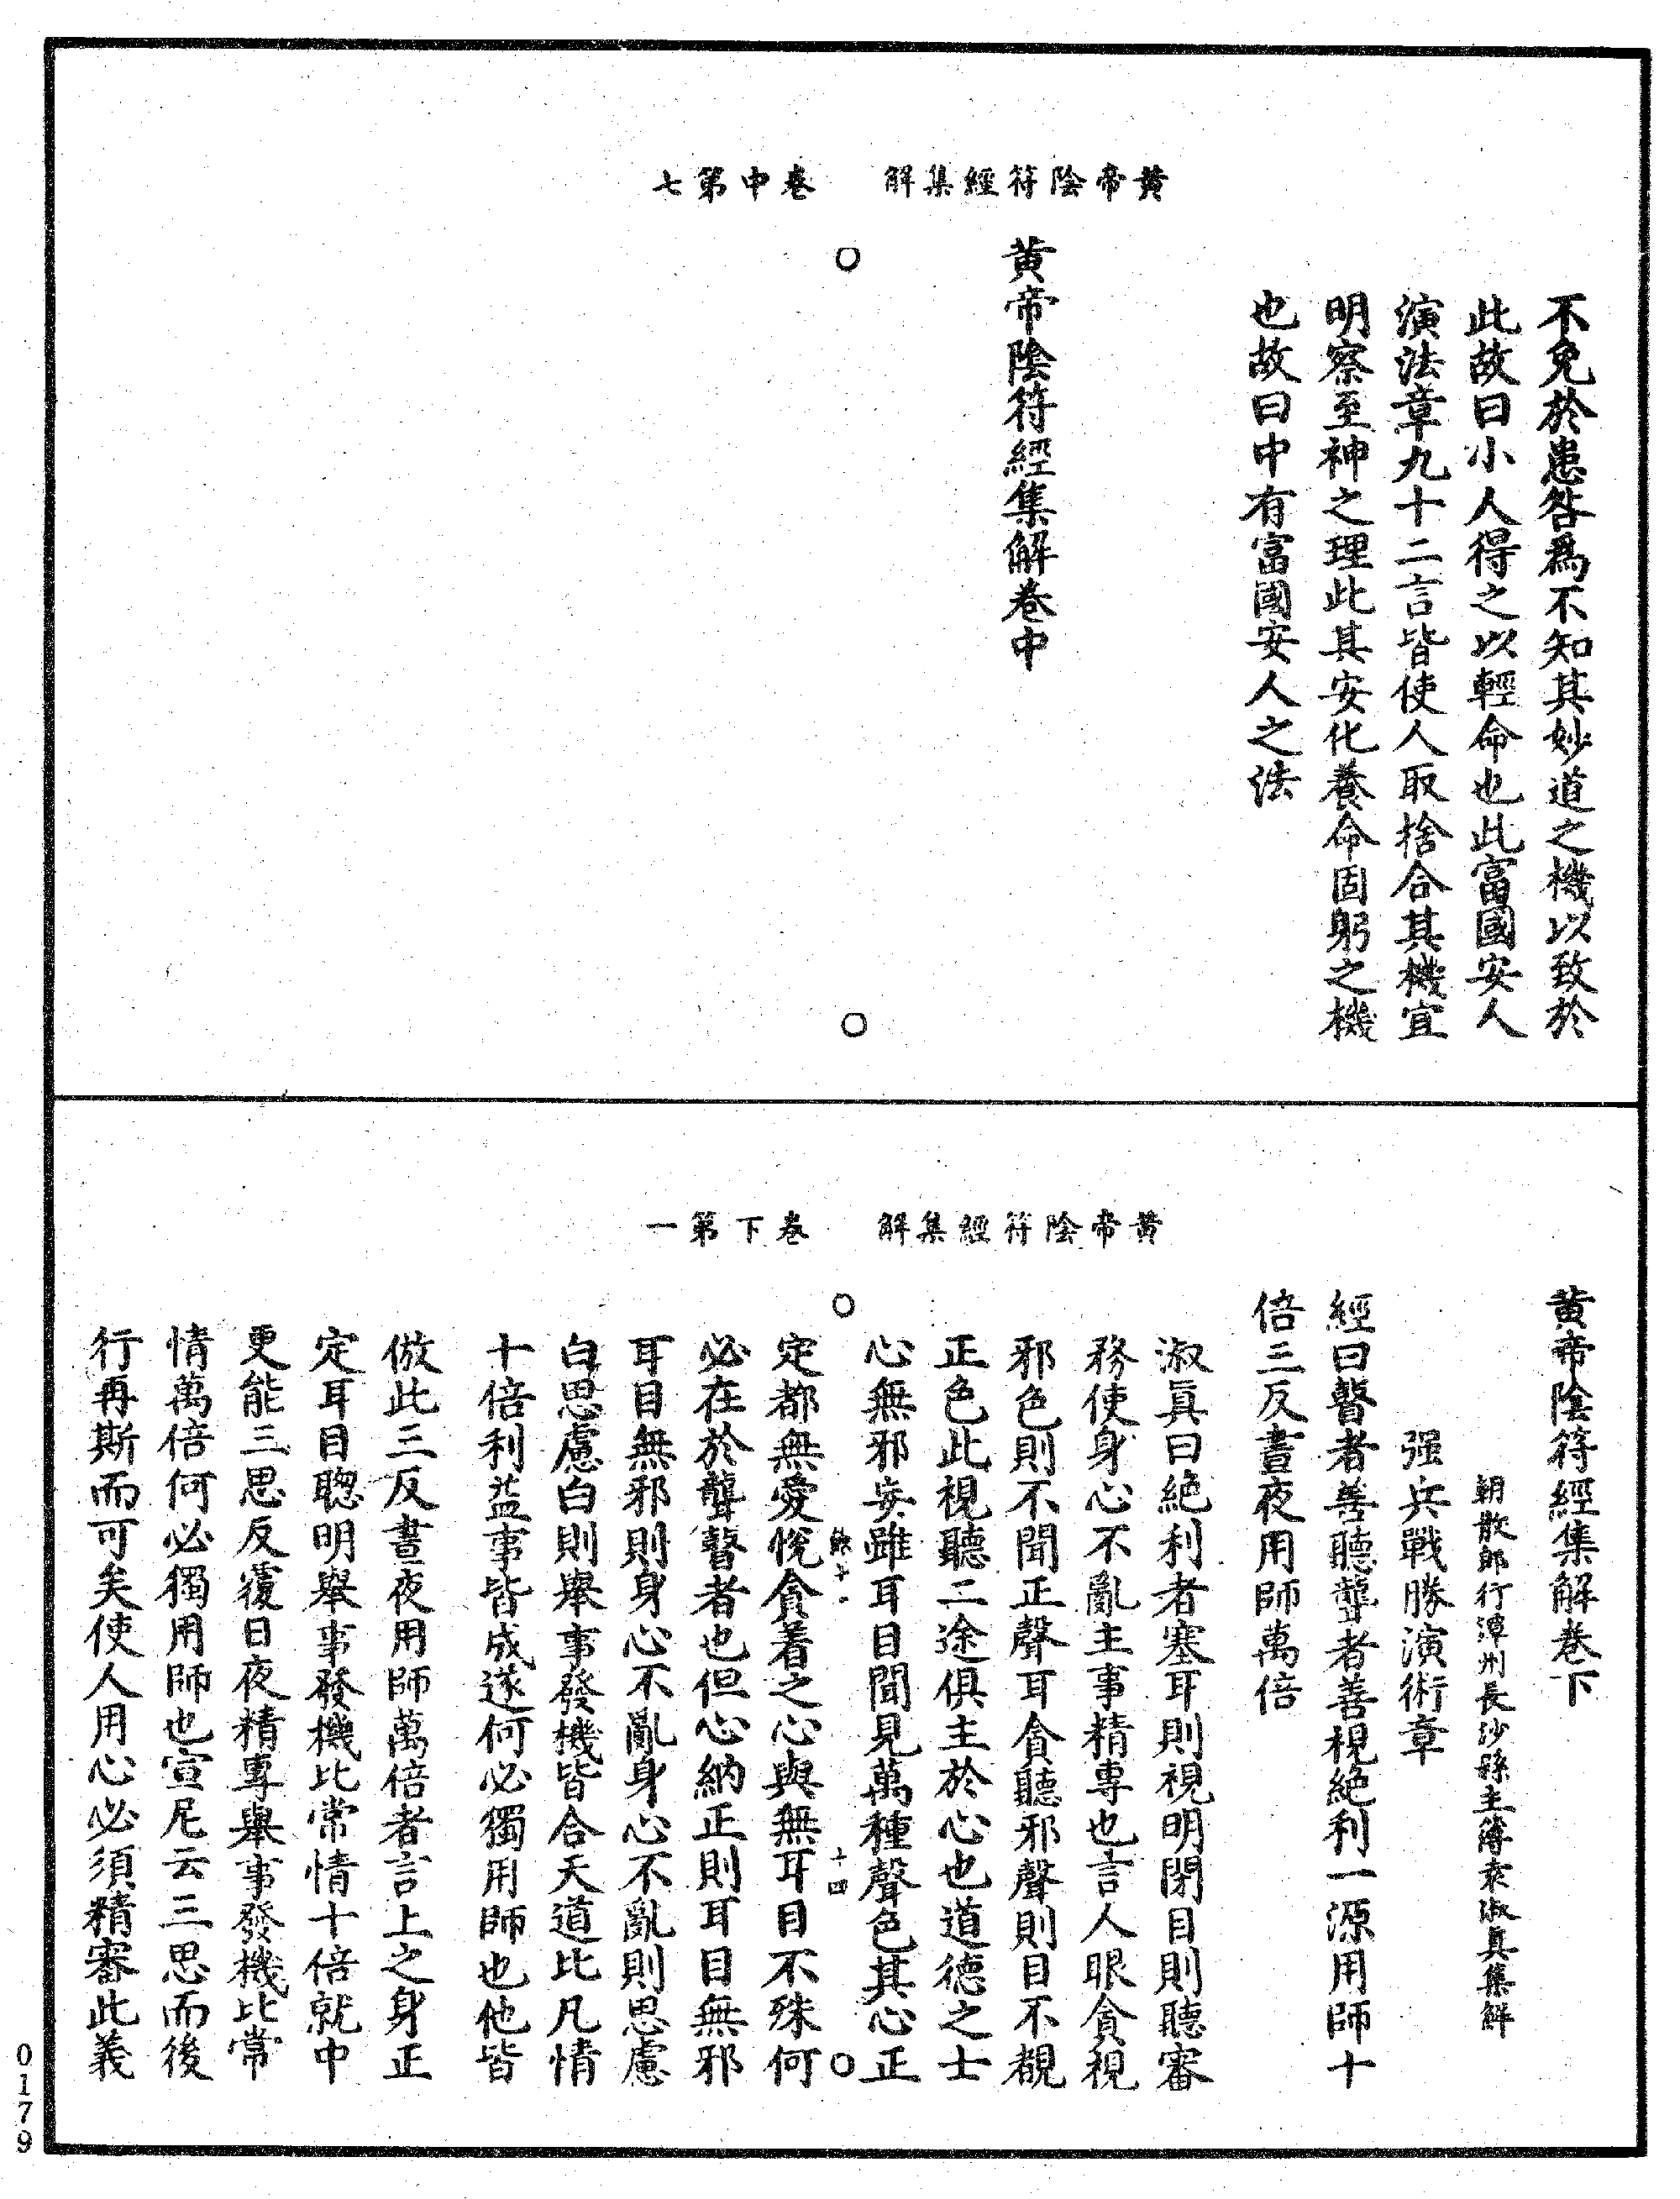 黄帝陰符經集解　卷中第七
不免於患咎爲不知其妙道之機以致於
此故曰小人得之以輕命也此富國安人
演法章九十二言皆使人取捨合其機宜
明察至神之理此其安化養命固躬之機
也故曰中有富國安人之法
黄帝陰符經集解卷中
黄帝陰符經集解　卷下第一
黄帝陰符經集解卷下
朝散郎行潭州長沙縣主簿袁淑真集解
强兵戰勝演術章
經曰瞽者善聽聾者善視絶利一源用師十
倍三反晝夜用師萬倍
淑真曰絶利者塞耳則視明閉目則聽審
務使身心不亂主事精專也言人眼貪視
邪色則不聞正聲耳貪聽邪聲則目不覩
正色此視聽二途俱主於心也道德之士
心無邪妄雖耳目聞見萬種聲色其心正
十四
定都無愛悅貪着之心與無耳目不殊何
必在於聾瞽者也但心納正則耳目無邪
耳目無邪則身心不亂身心不亂則思慮
白思慮白則舉事發機皆合天道比凡情
十倍利益事皆成遂何必獨用師也他皆
倣此三反晝夜用師萬倍者言上之身正
定耳目聰明舉事發機比常情十倍就中
更能三思反覆日夜精專舉事發機比常
情萬倍何必獨用師也宣尼云三思而後
行再斯而可矣使人用心必須精審此義
0179